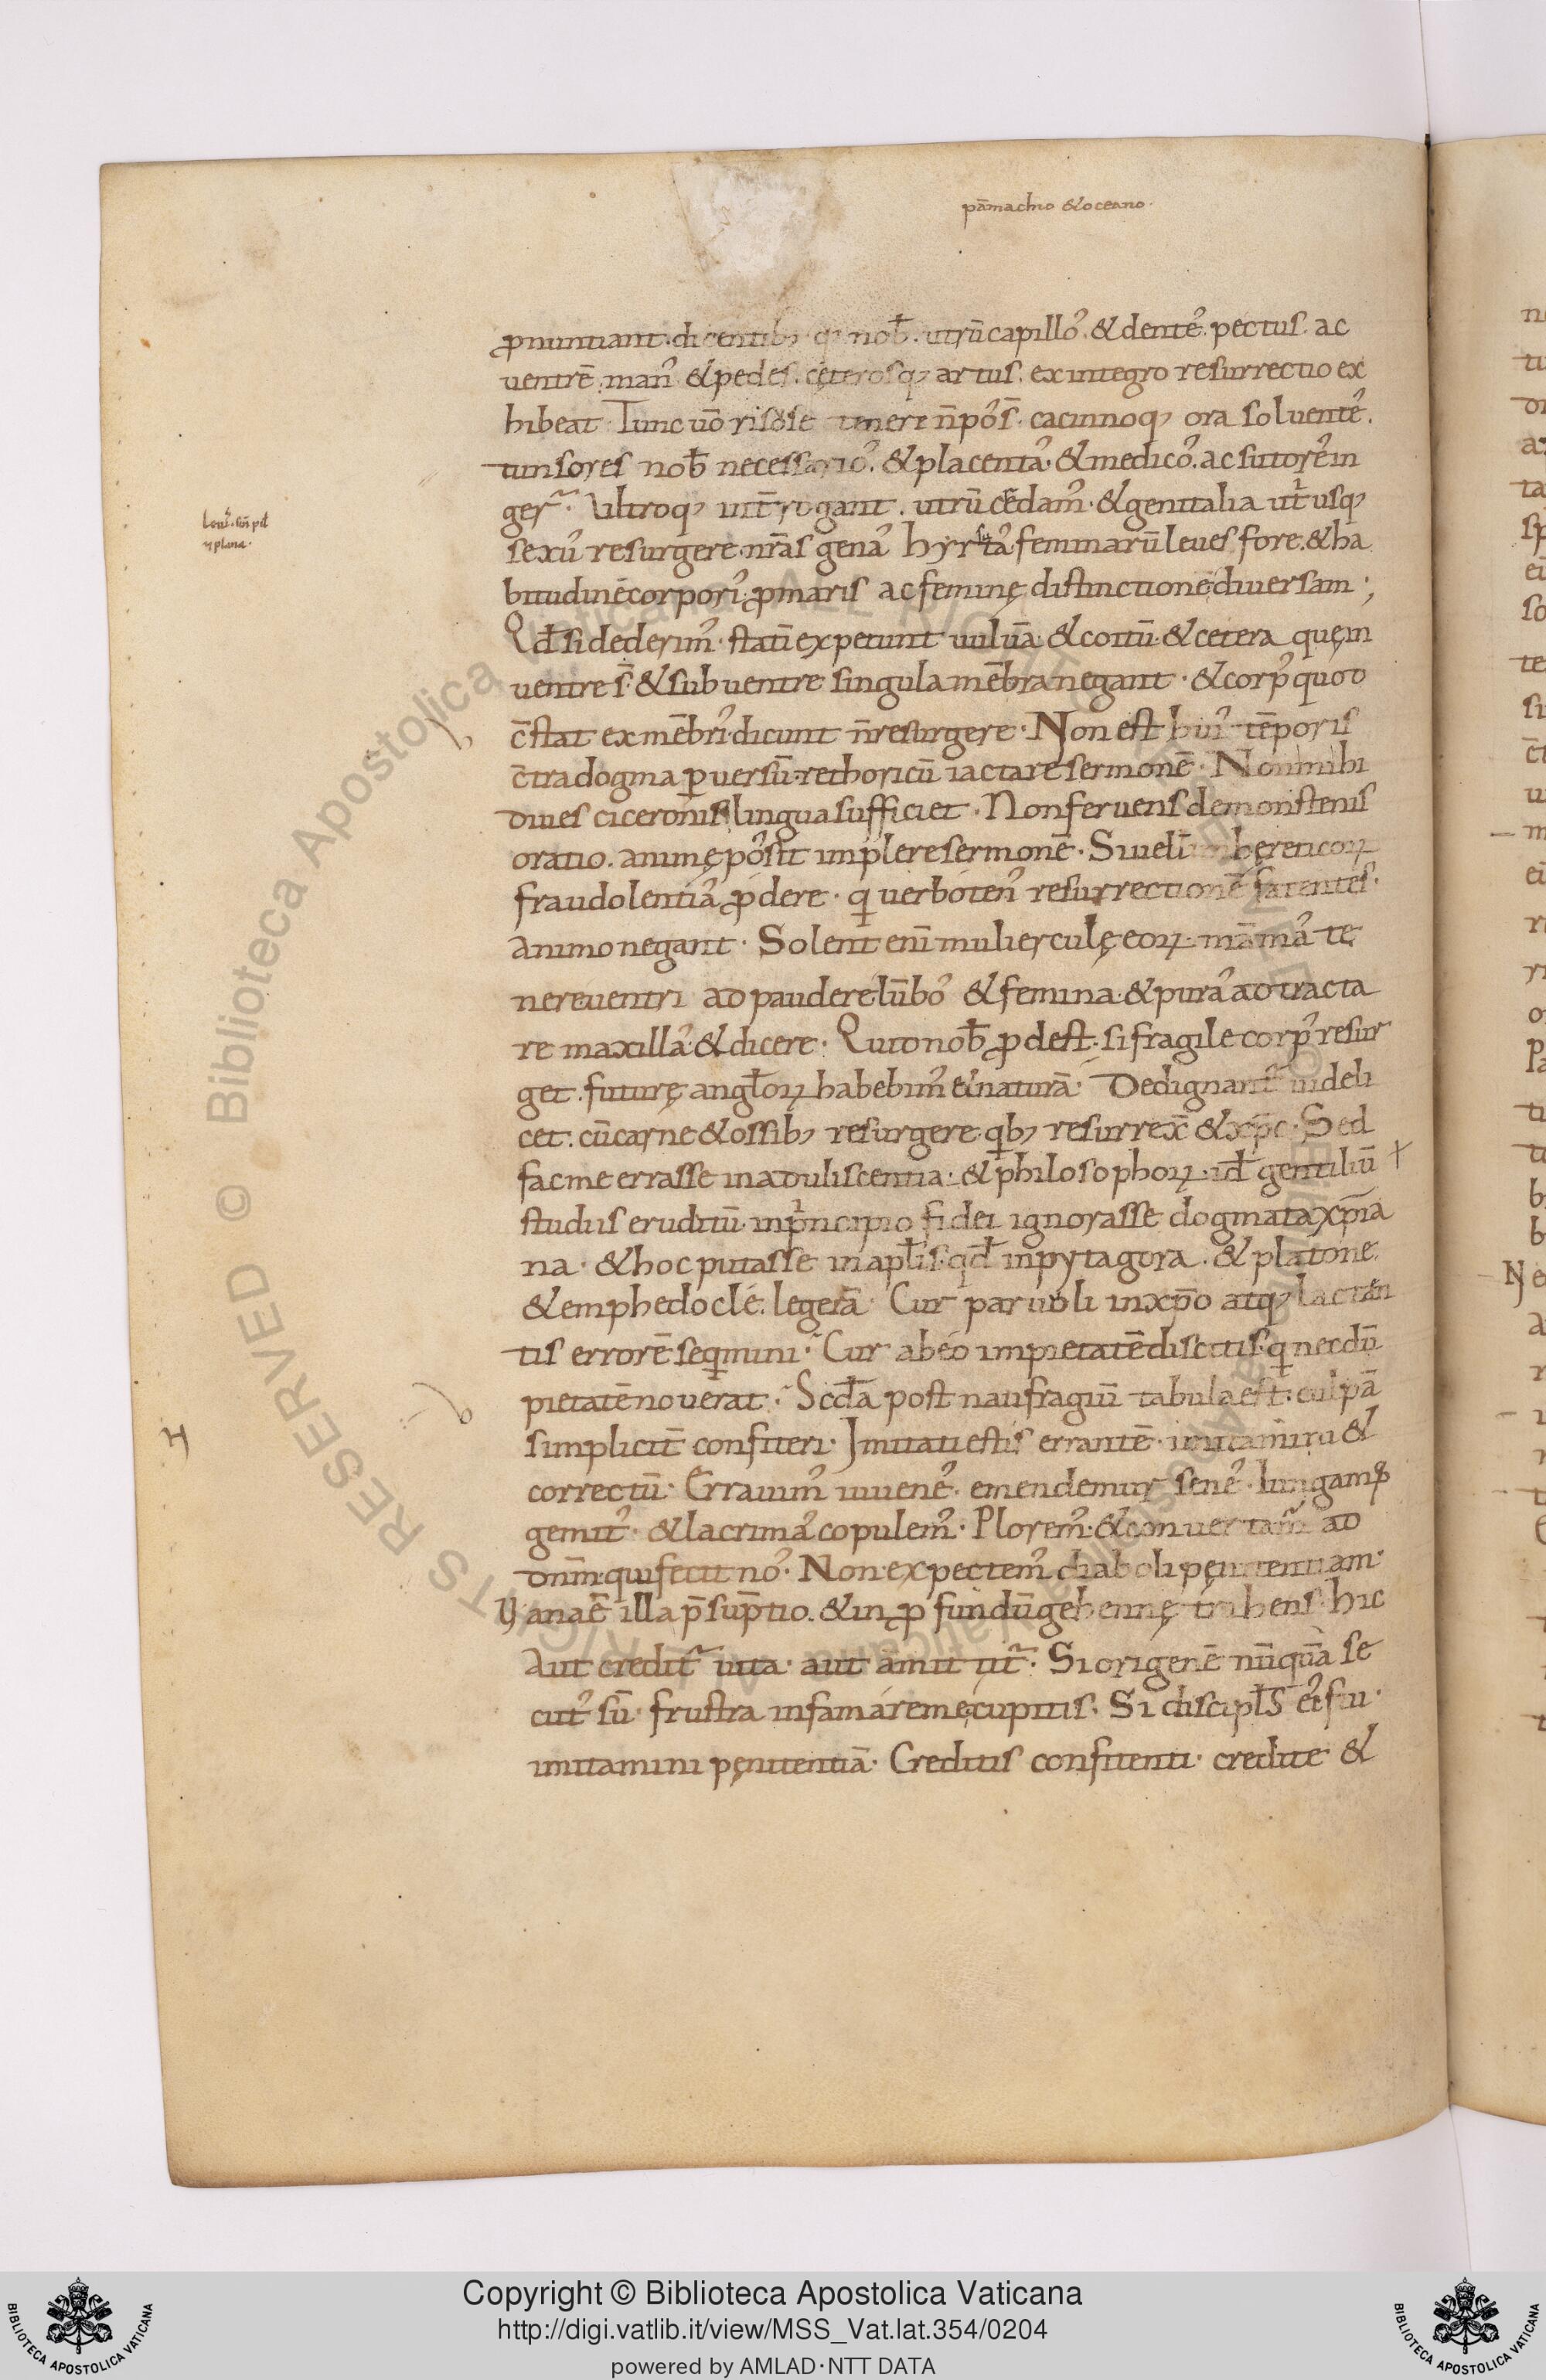 pāmachio &oceano.
ꝓnuntiant. dicentib; q; nob̄. utrū capilloʾ. &denteʾ. pectus. ac
uentrē. manʾ. &pedes. cęterosq; artus. exintegro resurrectio ex
hibeat. Tunc uō risuse tenere n̄poʾs̄. cacinnoq; ora soluenteʾ.
tunsores nob̄ necessarioʾ. &placentaʾ. &medicoʾ. ac sutoreʾ in
gerʾ. Ultroq; int̄rogant. utrū credamʾ. &genitalia utriusq;
sexuʾ resurgere. nr̄as genaʾ hyrsutaʾ. feminarū leues fore. &ha
bitudinē corporiʾ. ꝓmaris ac feminę distinctionē diuersam;
Qd̄ si dederimʾ. statī expetunt uuluā. &coitū. &cetera quę in
uentre s̄. &sub uentre singula mēbra negant. &corpʾ quod
c̄stat ex mēbriʾ. dicunt n̄ resurgere. Non est huiʾ tēporis
c̄tra dogma ꝑuersū. rethoricū iactare sermonē. Non mihi
diues ciceronis lingua sufficiet. Non feruens demonstenis
oratio. animę poʾsit implere sermonē. Si uelī hęreticoꝝ
fraudolentiaʾ ꝓdere. qͥ uerbotenʾ resurrectionē fatentes.
animo negant. Solent enī mulierculę eoꝝ. māmaʾ te
nere uentri adpaudere lūboʾ &femina. &puraʾ adtracta
re maxillaʾ. &dicere. Quid nob̄ ꝓdest. si fragile corpʾ resur
get. futurę angl̄oꝝ habebimʾ &naturā. Dedignantʾ uideli
cet. cū carne &ossib; resurgere. qͥb; resurrex̄ &xp̄c. Sed
fac me errasse in aduliscentia. &philosophoꝝ. id̄ gentiliū
studiis eruditū. in pͥncipio fidei ignorasse dogmata xp̄ia
na. &hoc putasse in apl̄is. qd̄ in pytagora. &platone.
&emphedocle. legerā. Cur paruoli in xp̄o atq; lactan
tis errorē seqͥmini. Cur ab eo impietatē discitis. qͥ necdū
pietatē nouerat. Scd̄a post naufragiū tabula est. culpā
simplicit̄ confiteri. Imitati estis errantē. imitamini &
correctū. Errauimʾ iuueneʾ. emendemur seneʾ. Iungamʾ
gemitʾ. &lacrimaʾ copulemʾ. Ploremʾ. &conuertamʾ ad
dnm̄. qui fecit noʾ. Non expectemʾ diaboli pęnitentiam.
Uana ē illa p̄sūptio. &in ꝓfundū gehennę trahens. hic
Aut creditʾ uita. aut āmittitʾ. Si origenē nūquā se
cutʾ sū. frustra infamare me cupitis. Si discipl̄s eiʾ fui.
imitamini pęnitentiā. Creditis confitenti. credite &
Copyright © Biblioteca Apostolica Vaticana
http://digi.vatlib.it/view/MSS_Vat.lat.354/0204
powered by AMLAD·NTT DATA